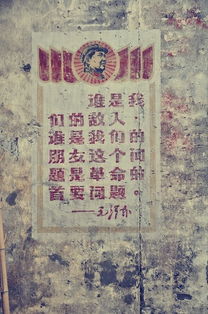 谁是我
们的敌人，
谁是我们的
朋友这个问
题是革命的
首要问题。
——毛泽东